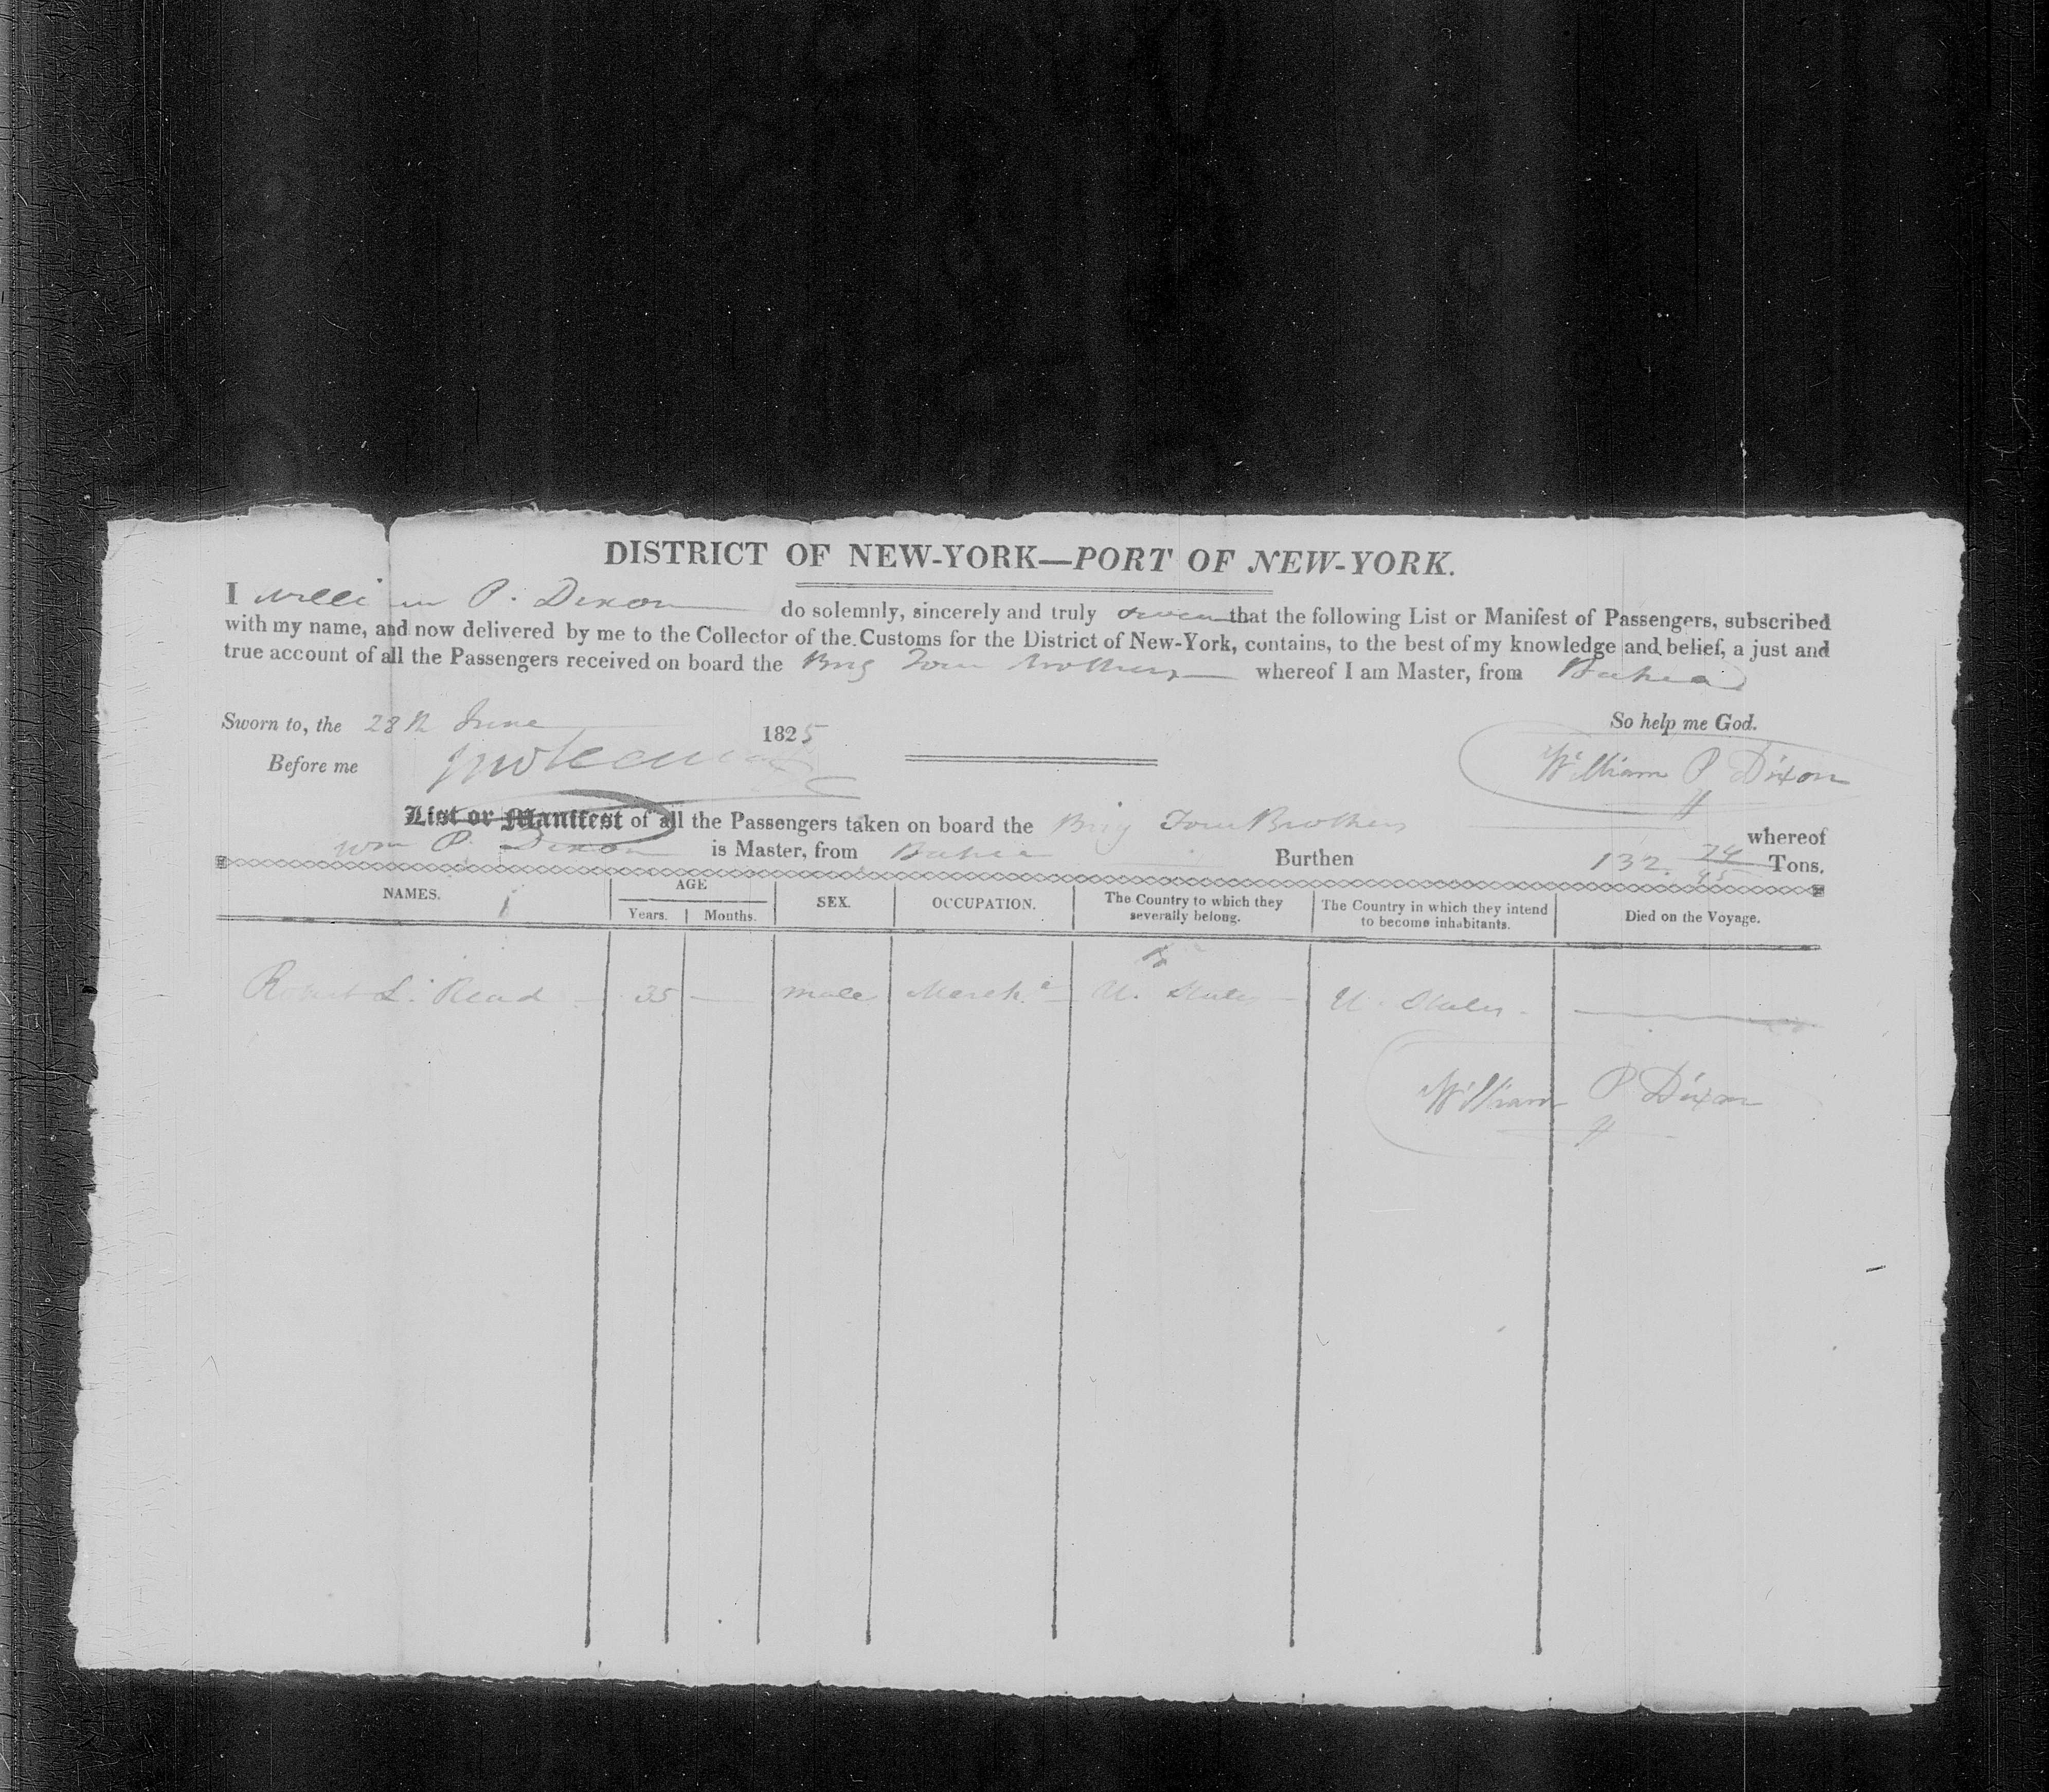 DISTRICT OF NEW-YORK—PORT OF NEW-YORK.
I William P. Dixon do solemnly, sincerely and truly swear that the following List or Manifest of Passengers, subscribed
with my name, and now delivered by me to the Collector of the Customs for the District of New-York, contains, to the best of my knowledge and belief, a just and
true account of all the Passengers received on board the Brig Four Brothers whereof I am Master, from Bahia
Sworn to, the 28th June 1825 So help me God.
Before me William P Dixon
List or Manifest of all the Passengers taken on board the Brig Four Brothers whereof
Wm P. Dixon is Master, from Bahia Burthen 132 24/95 Tons.
NAMES. AGE SEX. OCCUPATION. The Country to which they severally belong. The Country in which they intend to become inhabitants. Died on the Voyage.
Years. Months.
Robert L. Read 35 — male March.t U. States U. States —
William P Dixon